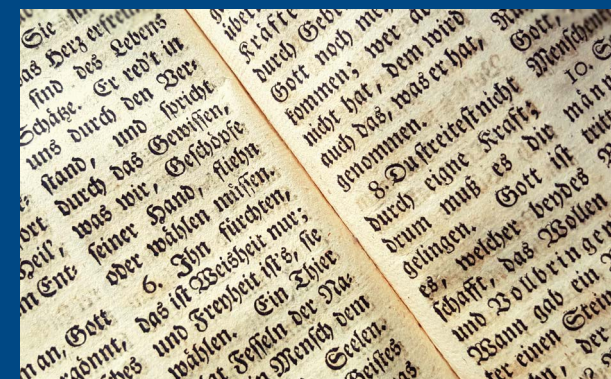 Gott
Sie
das Herz
sind des Lebens
Schätze. Er red't in
uns durch den Ver-
stand, und spricht
durch das Gewissen,
was wir, Geschöpfe
seiner Hand, fliehn
oder wählen müssen.
6. Ihn fürchten,
das ist Weisheit nur;
und Freyheit ist's, sie
wählen. Ein Thier
Fesseln der Na-
Mensch dem
Seelen.
Geistes
Kräfte
durch
Gott noch
kommen; wer
nicht hat, dem wird
auch das, was er hat,
genommen.
8. Du streitest nicht
durch eigne Kraft;
drum muß es dir
gelingen. Gott ist
es, welcher beydes
schafft, das Wollen
und Vollbringen
Wann gab ein
einen
Gott,
10.